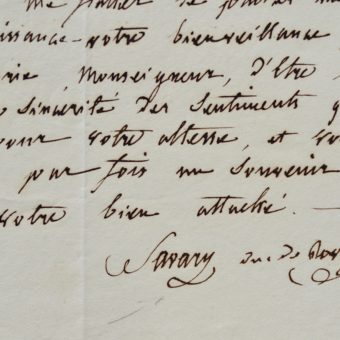 me flatter je
votre bienveillance
Monseigneur, d'être
Sincérité des Sentiments q
pour votre altesse, et vo
par fois un Souvenir
votre bien attaché. —
Savary duc de Rov